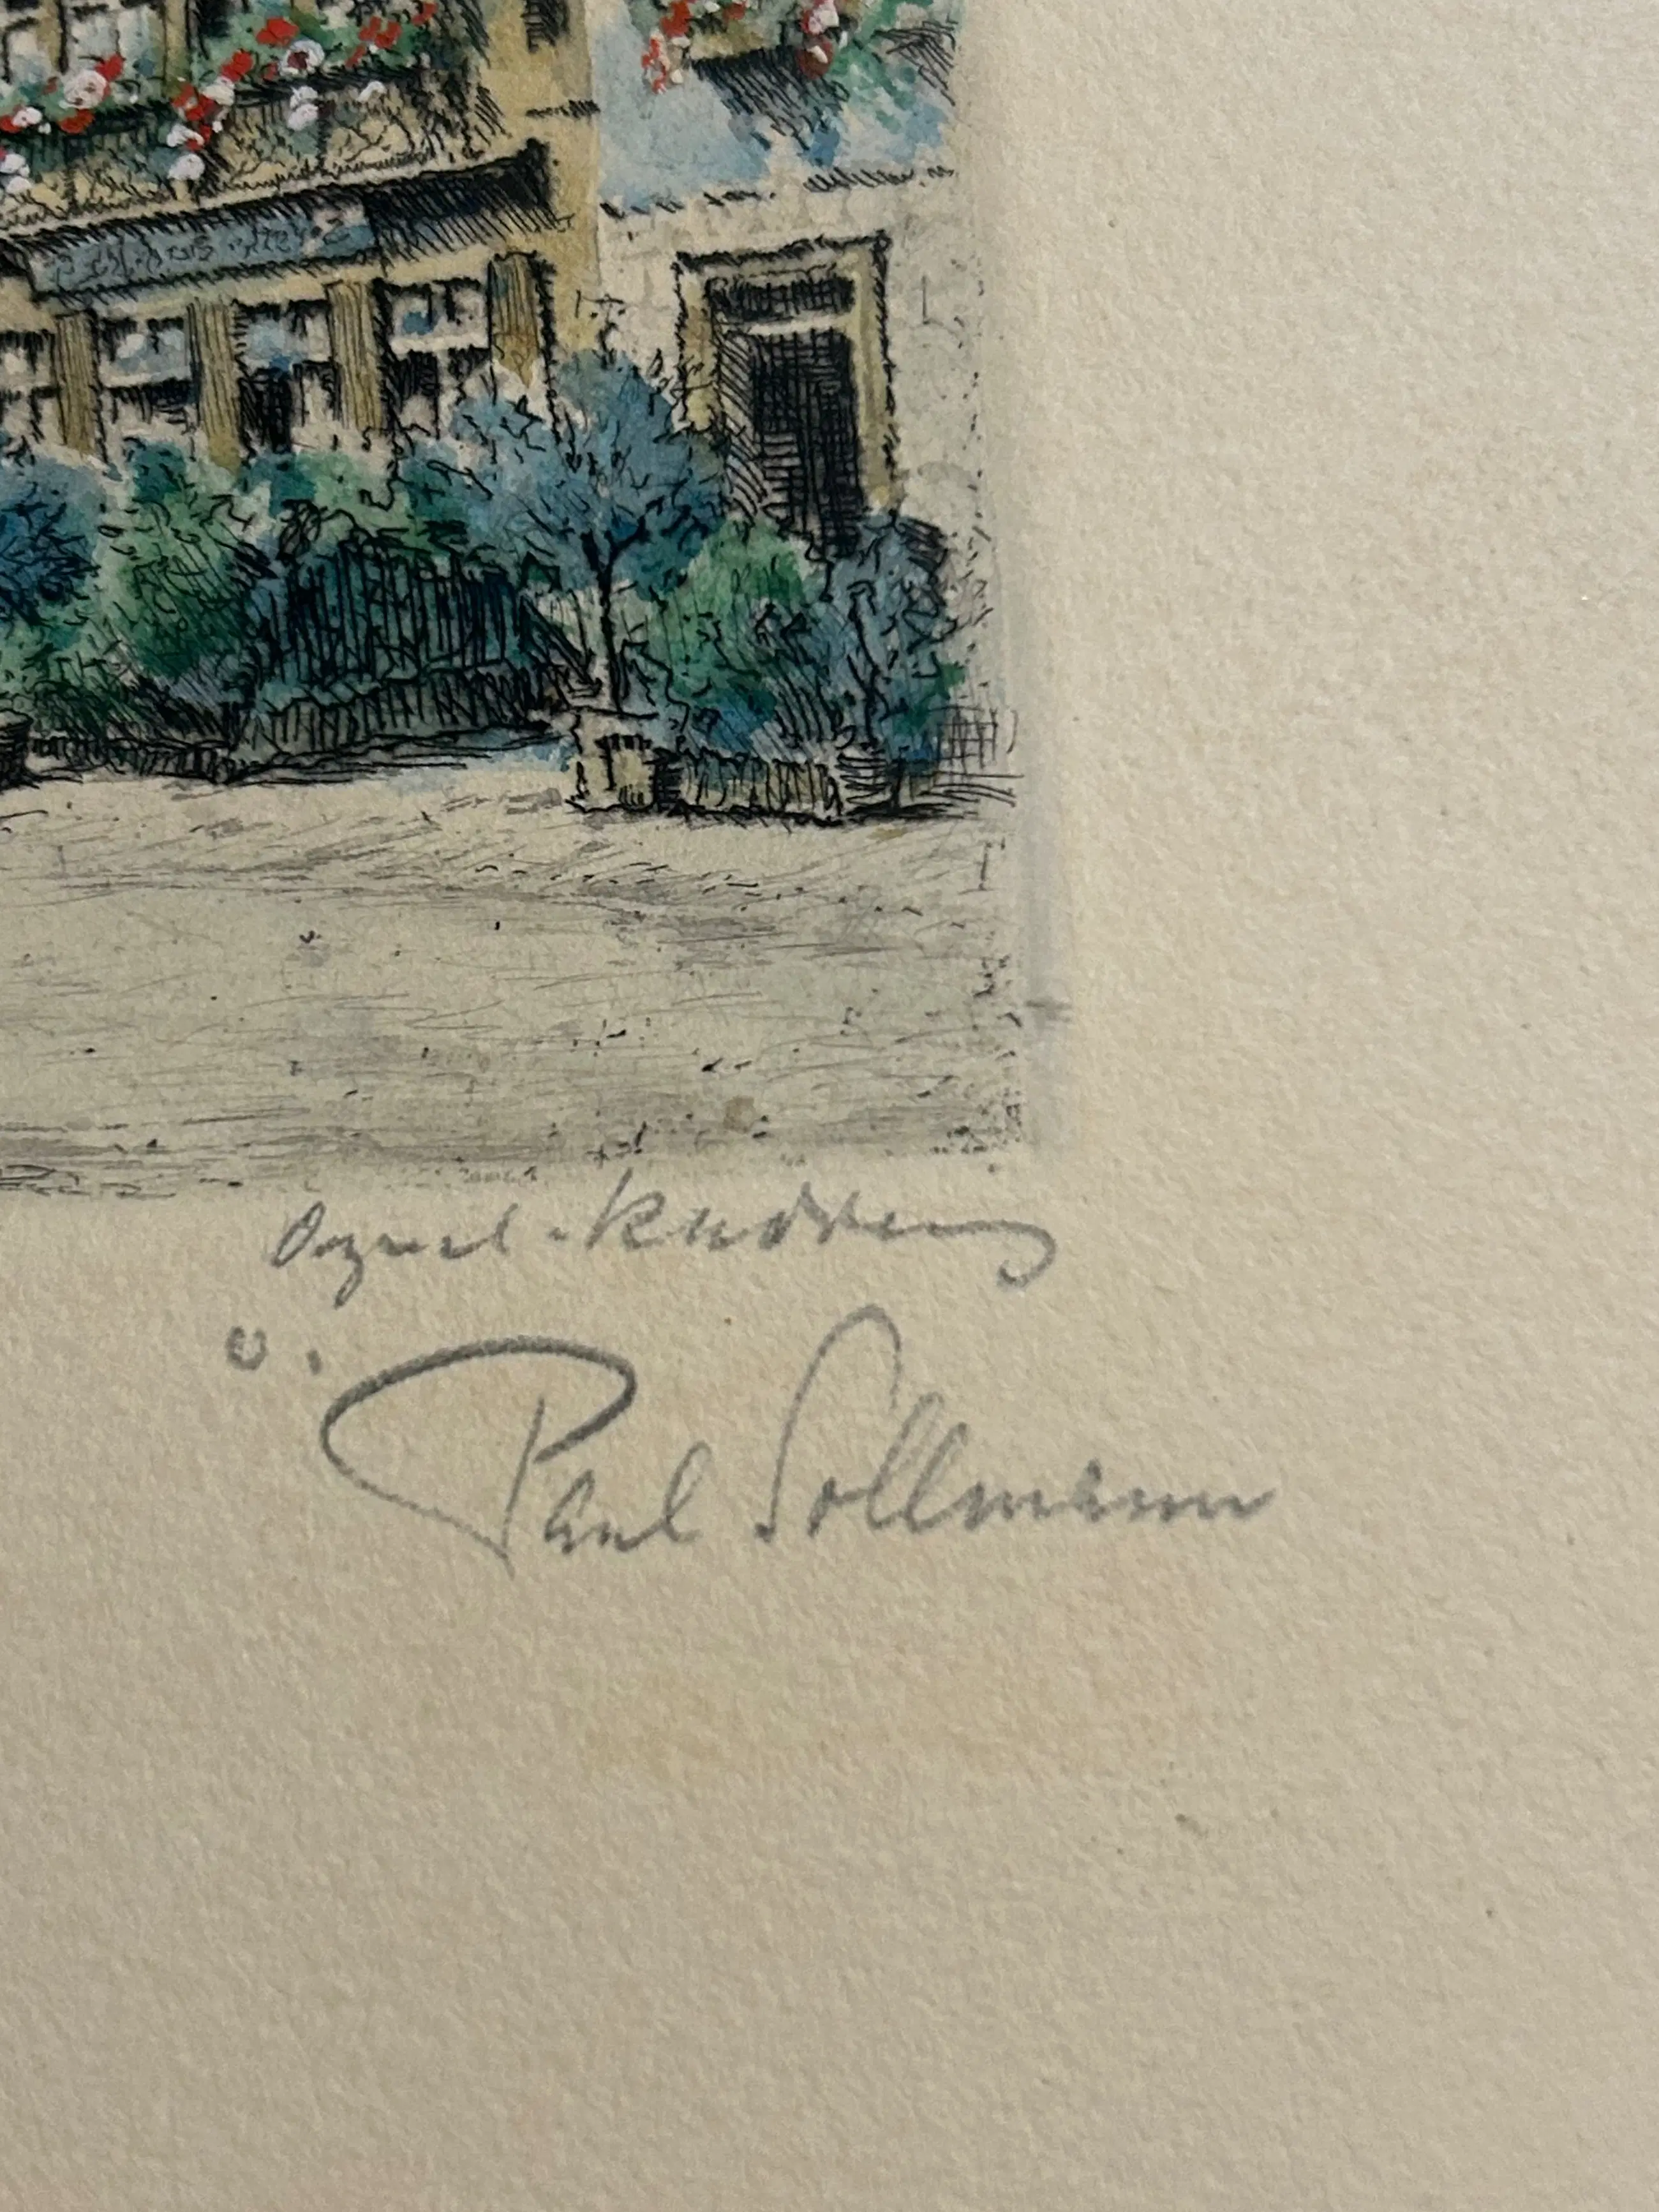 Orginal-Radierung
v. Paul Sollmann